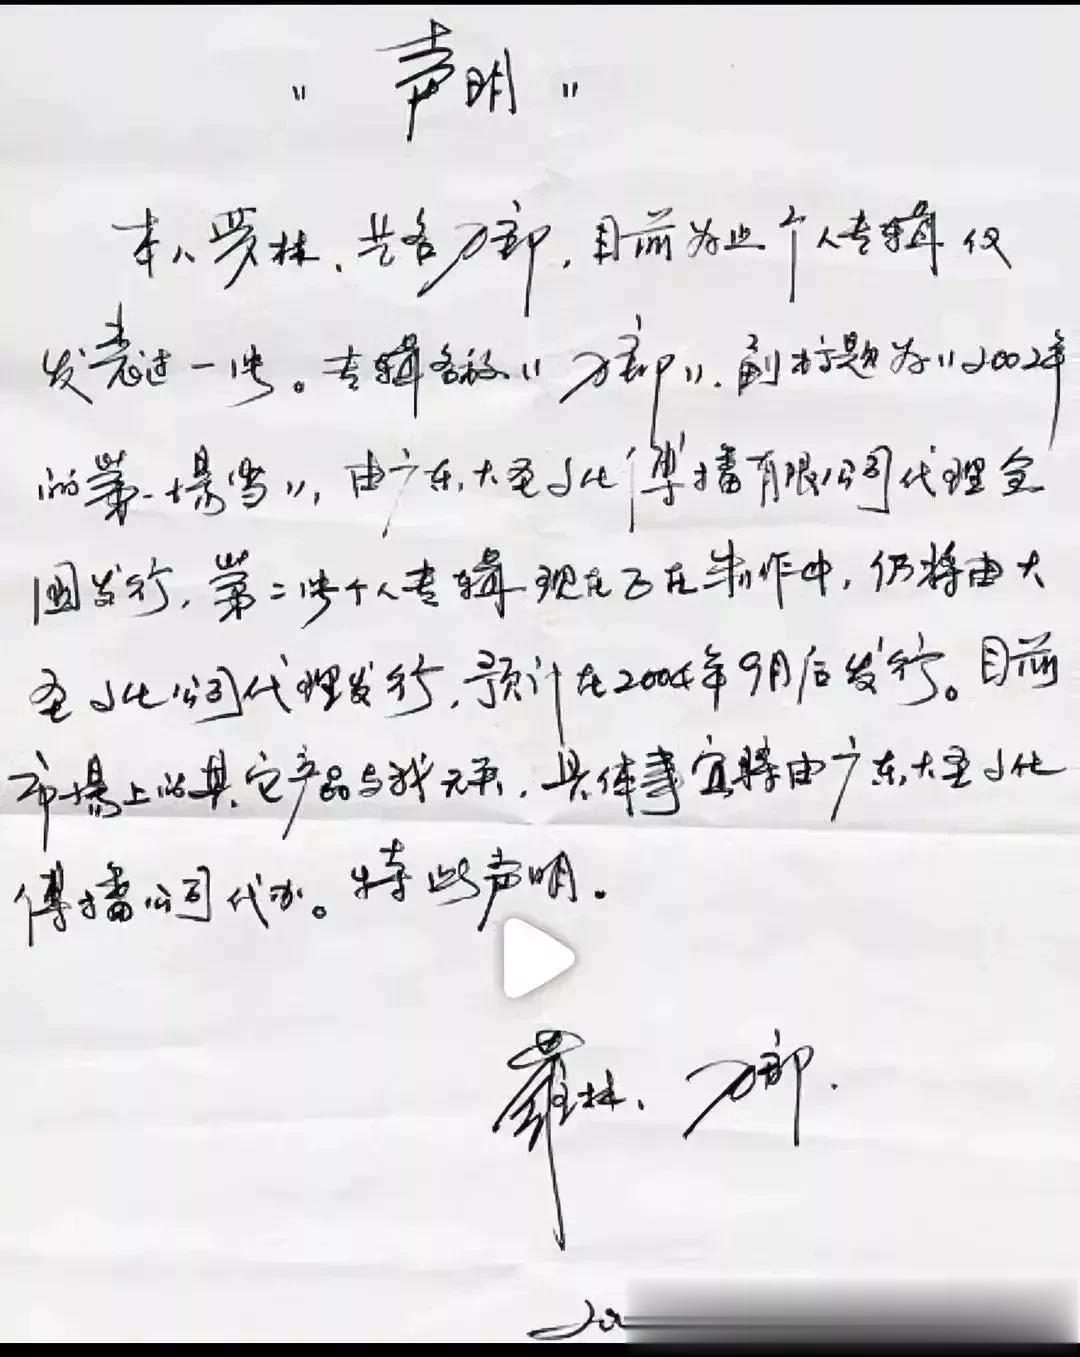 "声明"
本人罗林、艺名刀郎,目前为止个人专辑仅
发表过一张。专辑名称"刀郎",副标题为"2002年
的第一场雪",由广东大圣文化傳播有限公司代理全
国发行,第二张个人专辑现在正在制作中,仍将由大
圣文化公司代理发行,预计在2004年9月后发行。目前
市场上的其它产品与我无关,具体事宜将由广东大圣文化
傳播公司代办。特此声明。
羅林、刀郎.